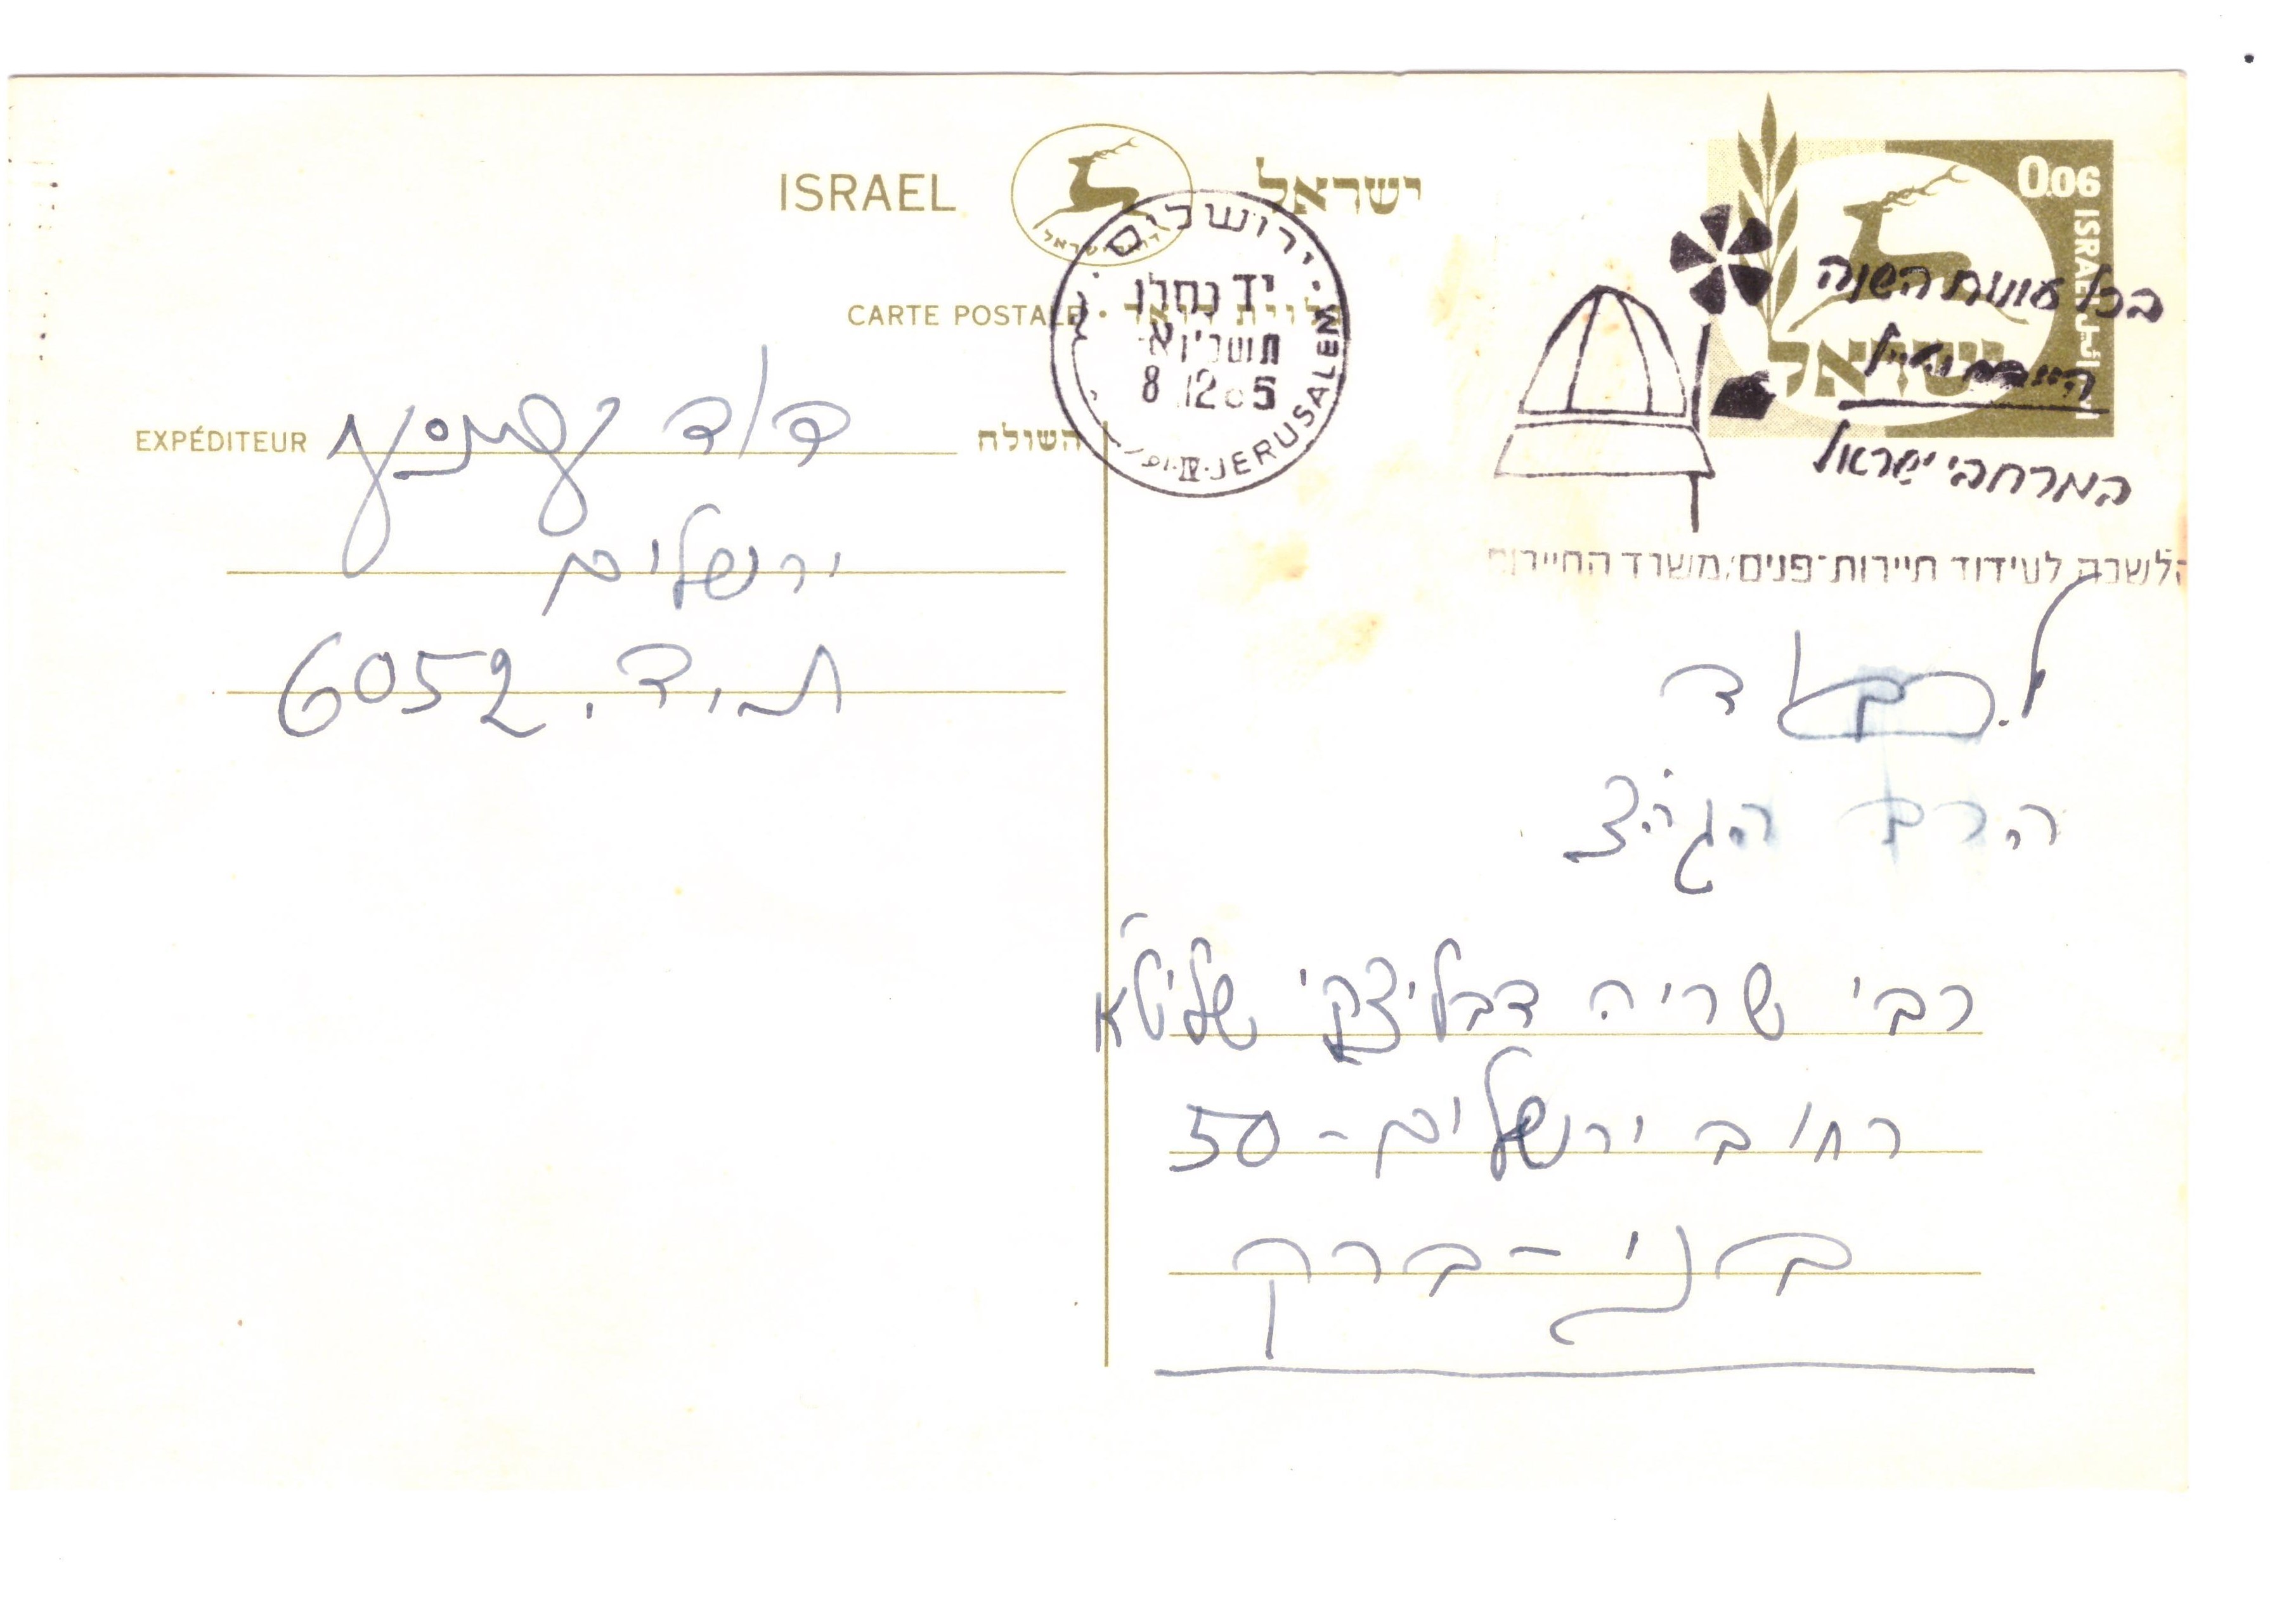 ISRAEL ישראל
דואר ישראל
0.06 ISRAEL
ישראל
CARTE POSTALE • גלוית דואר
ירושלים
JERUSALEM
8.12
בכל עונות השנה
במרחבי ישראל
הלשכה לעידוד תיירות-פנים/משרד התיירות
EXPÉDITEUR השולח
דוד
ירושלים
ת.ד. 6052
לכבוד
הרב הגה״צ
רבי שריה דבליצקי שליט״א
רחוב ירושלים - 50
בני - ברק